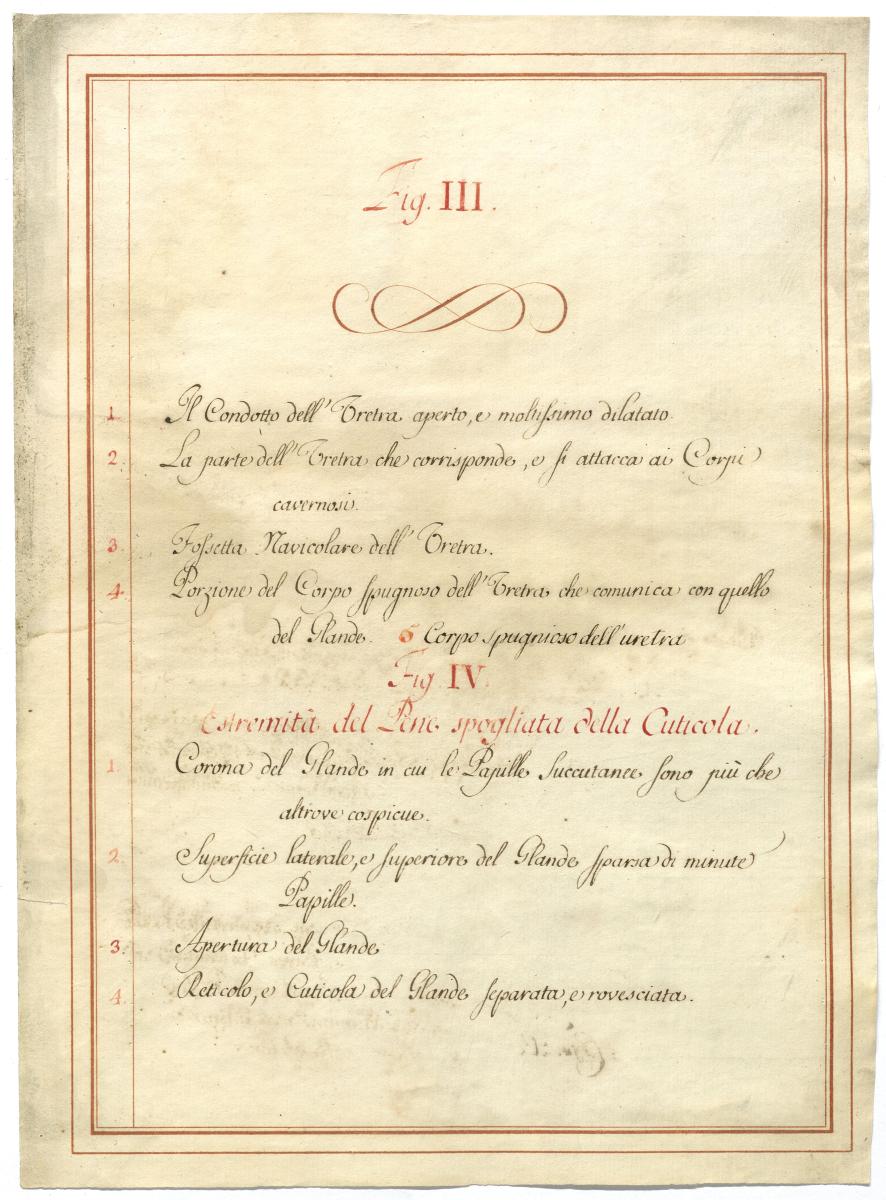 Fig. III.
1. Il Condotto dell'Uretra aperto, e moltissimo dilatato.
2. La parte dell'Uretra che corrisponde, e si attacca ai Corpi
cavernosi.
3. Fossetta Navicolare dell'Uretra.
4. Porzione del Corpo spugnoso dell'Uretra che comunica con quello
del Glande. 5 Corpo spugnioso dell'uretra
Fig IV.
Estremità del Pene spogliata della Cuticola.
1. Corona del Glande in cui le Papille Succutanee sono più che
altrove cospicue.
2. Superficie laterale, e superiore del Glande sparsa di minute
Papille.
3. Apertura del Glande
4. Reticolo, e Cuticola del Glande separata, e rovesciata.